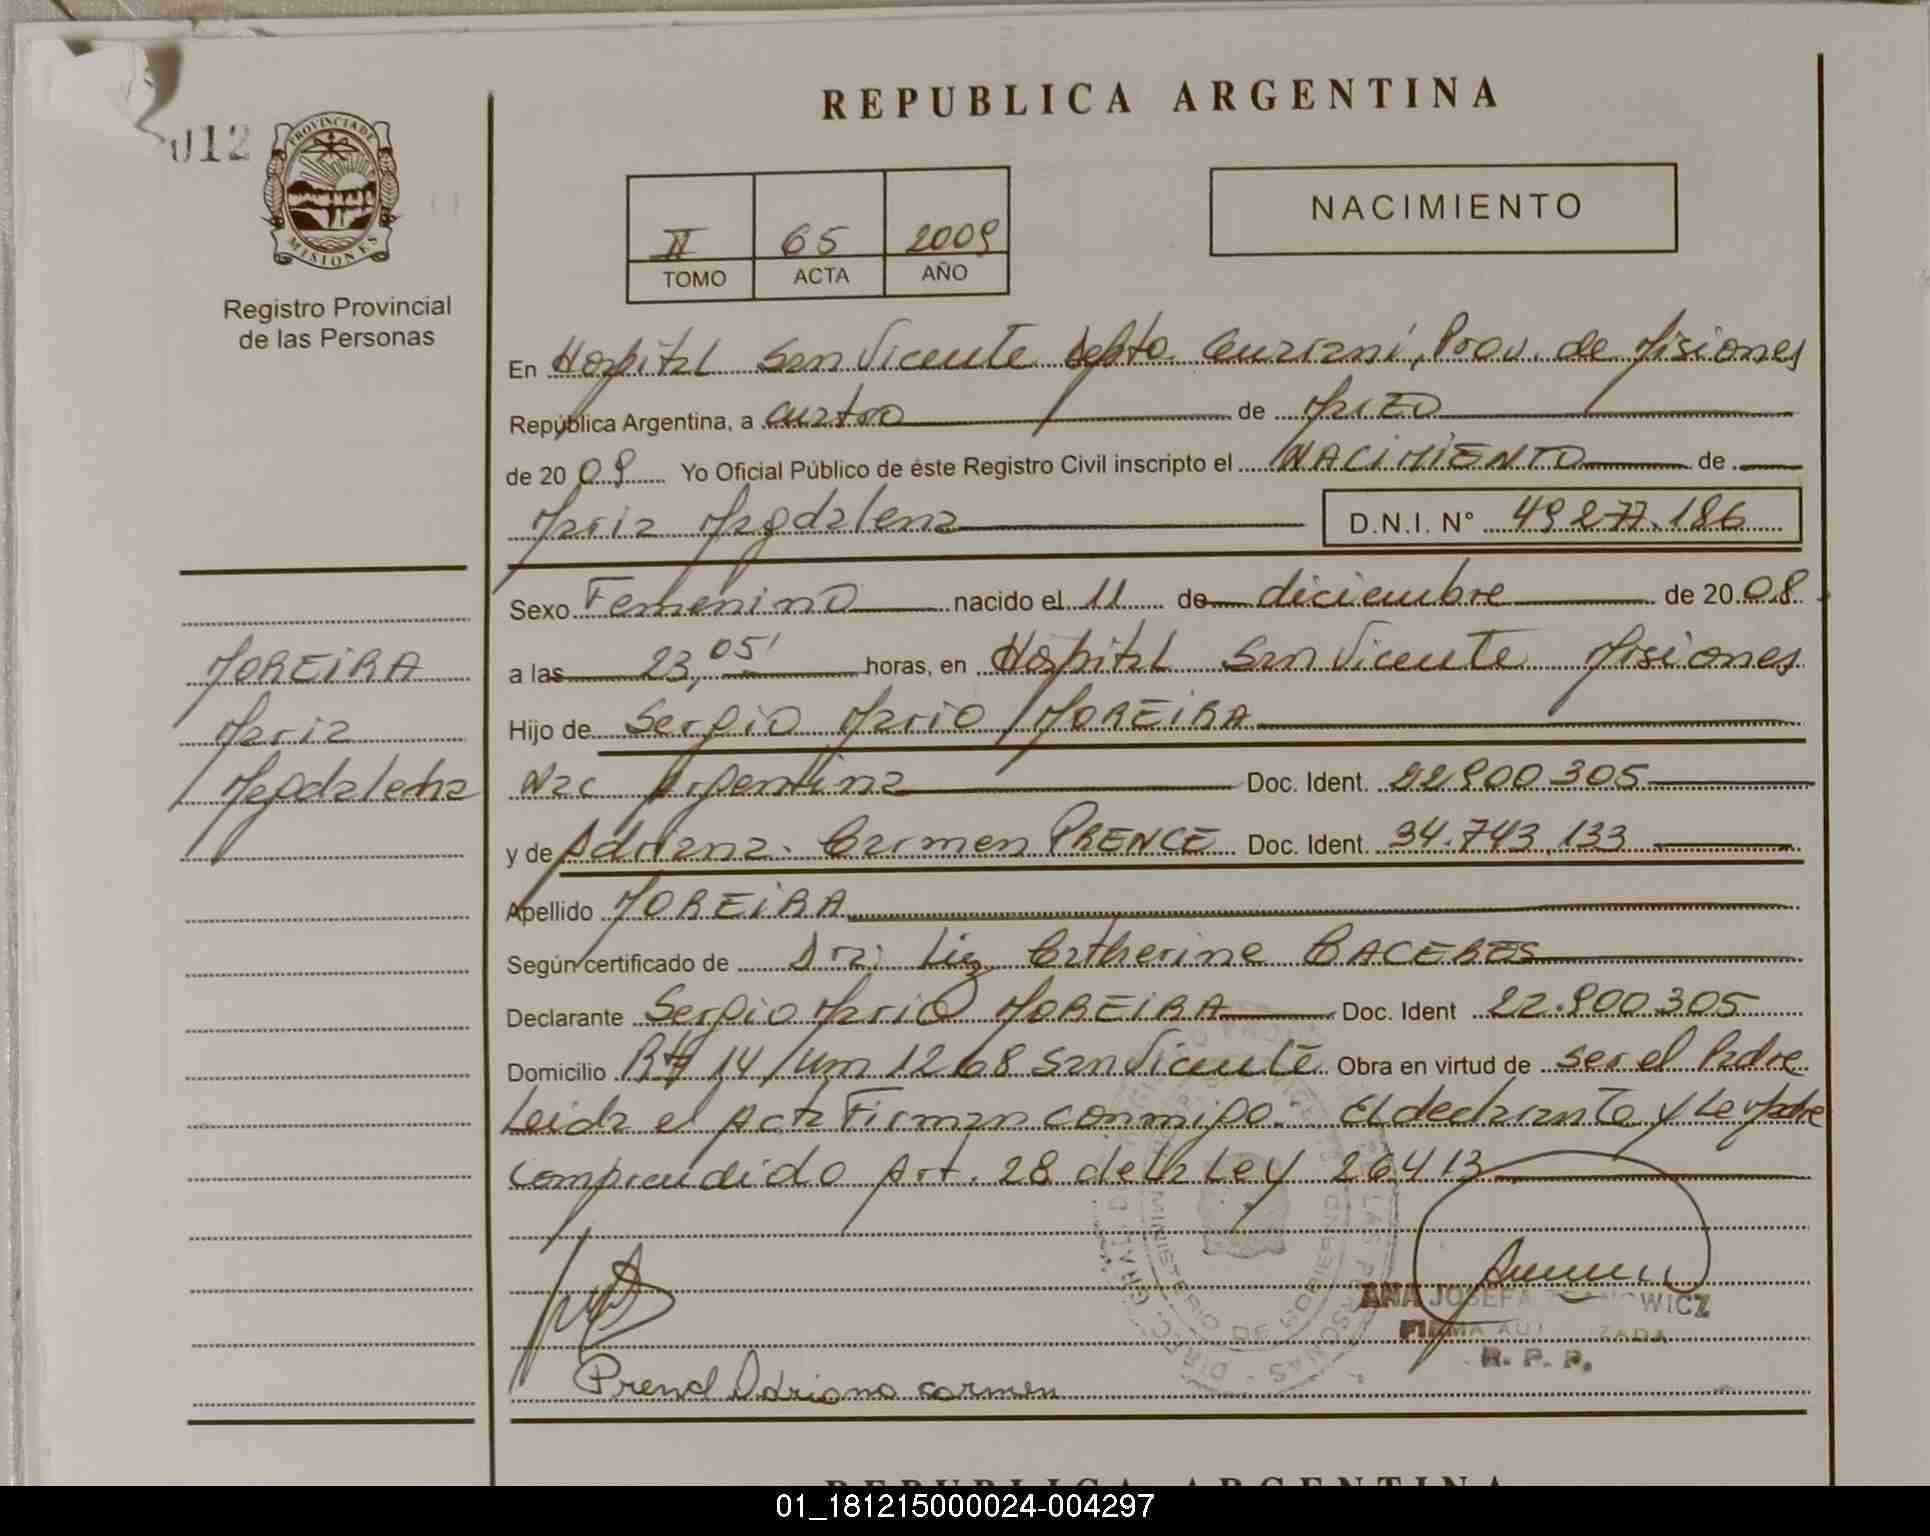 REPUBLICA ARGENTINA
012
PROVINCIA DE
MISIONES
Registro Provincial
de las Personas
II 65 2009
TOMO ACTA AÑO
NACIMIENTO
En Hospital San Vicente Depto Guarani, Prov. de Misiones
República Argentina, a cuatro de Marzo
de 20 09 Yo Oficial Público de éste Registro Civil inscripto el NACIMIENTO de
Maria Magdalena D.N.I. N° 49.277.186
Sexo Femenino nacido el 11 de diciembre de 20 08
a las 23,05' horas, en Hospital San Vicente Misiones
Hijo de Sergio Mario MOREIRA
Nac Argentina Doc. Ident. 22.900.305
y de Adriana Carmen PRENCE Doc. Ident. 34.743.133
Apellido MOREIRA
Según certificado de Dra: Liz Catherine CACERES
Declarante Sergio Mario MOREIRA Doc. Ident 22.900.305
Domicilio Rta 14 Km 1268 San Vicente Obra en virtud de ser el Padre
Leida el Acta Firman conmigo: El declarante y la Madre
comprendido Art. 28 de la Ley 26413
MOREIRA
Maria
Magdalena
Prencl Adriana carmen
ANA JOSEFA
FIRMA AUTORIZADA
R. P. P.
MINISTERIO DE GOBIERNO
REPUBLICA ARGENTINA
01_181215000024-004297